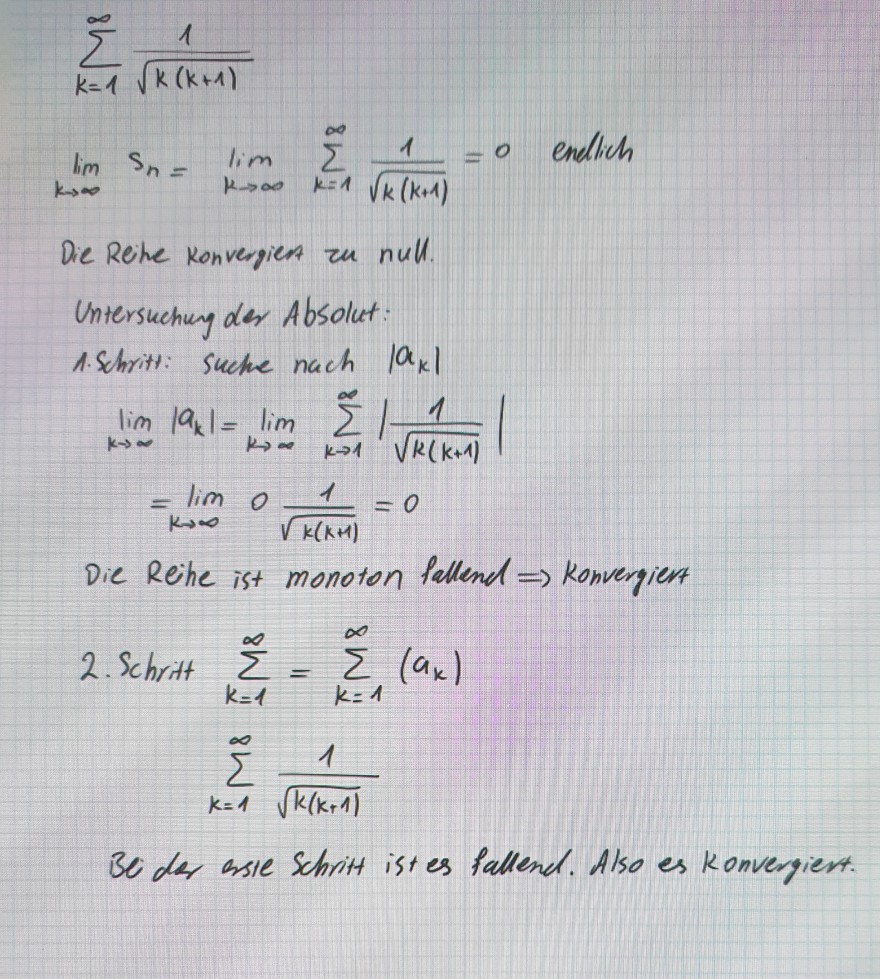 ∞ ∑ k=1 1/√k(k+1)
lim k→∞ Sn = lim k→∞ ∞ ∑ k=1 1/√k(k+1) = 0 endlich
Die Reihe konvergiert zu null.
Untersuchung der Absolut:
1. Schritt: suche nach |ak|
lim k→∞ |ak| = lim k→∞ ∞ ∑ k→1 |1/√k(k+1)|
= lim k→∞ 0 1/√k(k+1) = 0
Die Reihe ist monoton fallend => konvergiert
2. Schritt ∞ ∑ k=1 = ∞ ∑ k=1 (ak)
∞ ∑ k=1 1/√k(k+1)
Bei der erste Schritt ist es fallend. Also es konvergiert.